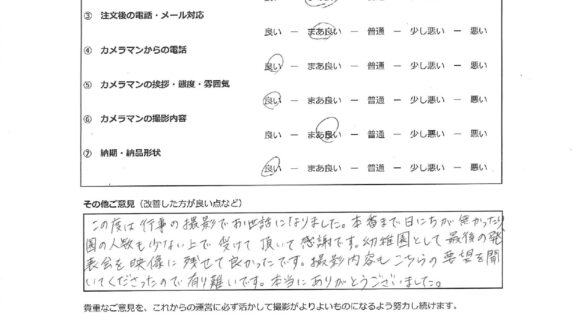 ③ 注文後の電話・メール対応
良い － まあ良い － 普通 － 少し悪い － 悪い
④ カメラマンからの電話
良い － まあ良い － 普通 － 少し悪い － 悪い
⑤ カメラマンの挨拶・態度・雰囲気
良い － まあ良い － 普通 － 少し悪い － 悪い
⑥ カメラマンの撮影内容
良い － まあ良い － 普通 － 少し悪い － 悪い
⑦ 納期・納品形状
良い － まあ良い － 普通 － 少し悪い － 悪い
その他ご意見（改善した方が良い点など）
この度は行事の撮影でお世話になりました。本番まで日にちが無かったり
園の人数も少ない上で受けて頂いて感謝です。幼稚園として最後の発
表会を映像に残せて良かったです。撮影内容もこちらの要望を聞
いてくださったので有り難いです。本当にありがとうございました。
貴重なご意見を、これからの運営に必ず活かして撮影がよりよいものになるよう努力し続けます。